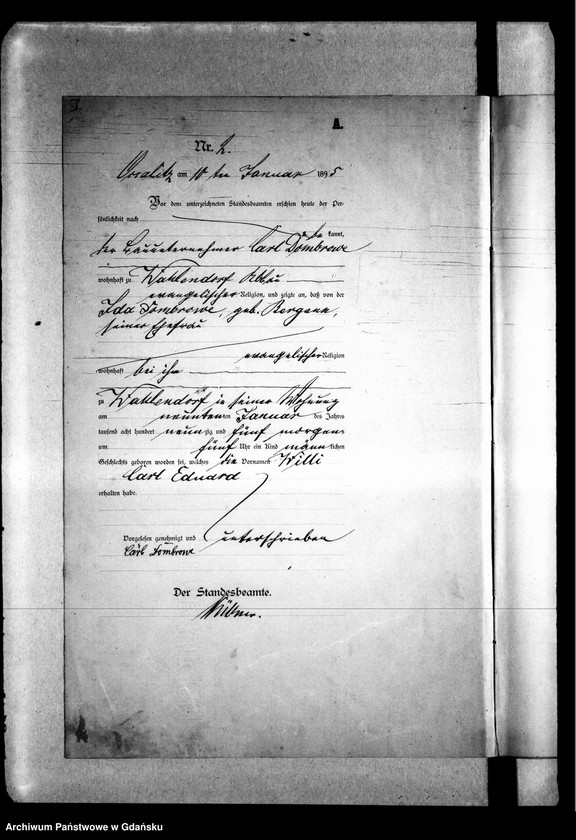 A.
Nr. 2.
am 10 ten Januar 1895
Vor dem unterzeichneten Standesbeamten erschien heute der Per-
sönlichkeit nach
be kannt,
der Bauunternehmer Carl Dombrowe
wohnhaft zu Wahlendorf
evangelischer Religion, und zeigte an, daß von der
Ida Dombrowe, geb. Bergann,
seiner Ehefrau
evangelischer Religion
wohnhaft bei ihm
zu Wahlendorf in seiner Wohnung
am neunten ten Januar des Jahres
tausend acht hundert neun zig und fünf morgens
um fünf Uhr ein Kind männ lichen
Geschlechts geboren worden sei, welches die Vornamen Willi
Carl Eduard
erhalten habe.
Vorgelesen, genehmigt und unterschrieben
Carl Dombrowe
Der Standesbeamte.
Archiwum Państwowe w Gdańsku